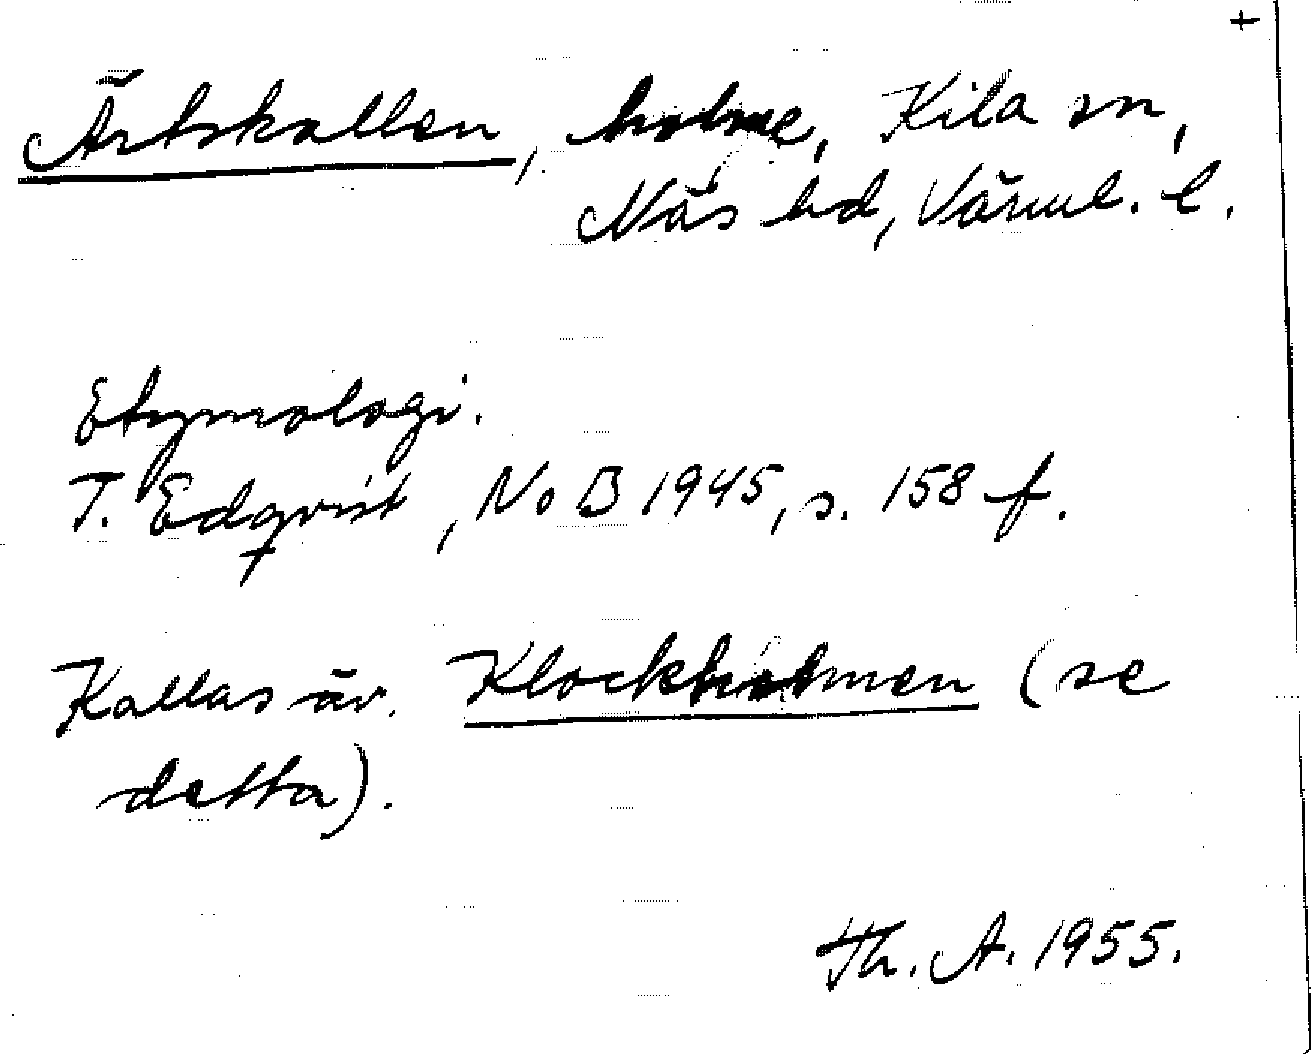 +
Ärtskallen, holme, Kila sn,
Näs hd, Värml. l.
Etymologi.
T. Edqvist, NoB 1945, s. 158 f.
Kallas äv. Klockholmen (se
detta).
Th. A. 1955.